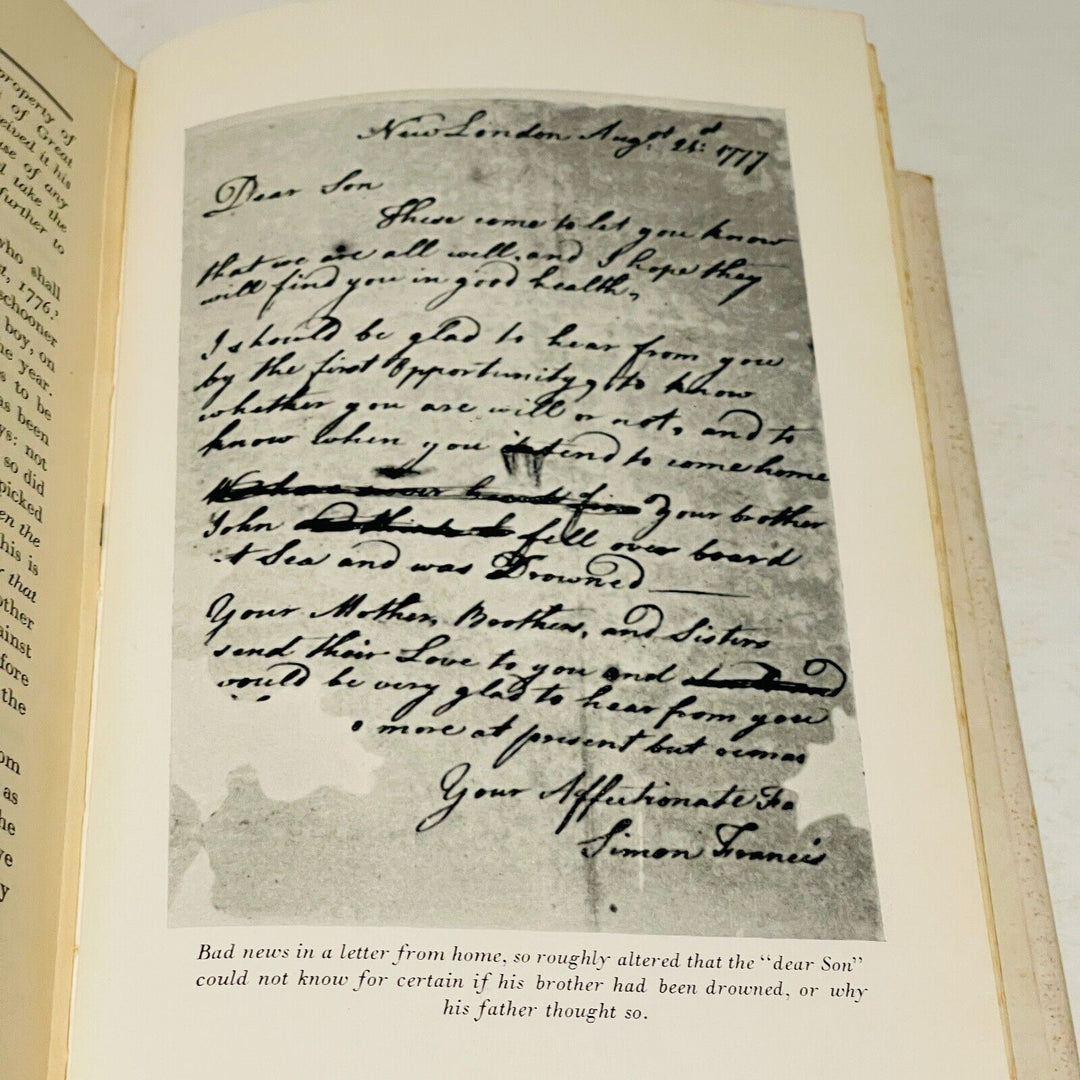 property of
of Great
ceived it his
use of any
d take the
further to
who shall
st, 1776.
schooner
boy, on
he year.
s to be
as been
ys: not
so did
picked
en the
his is
that
other
ainst
fore
the
om
as
he
ve
y
New London Augst 21st 1777
Dear Son
These come to let you know
that we are all well, and I hope they
will find you in good health,
I should be glad to hear from you
by the first Opportunity, to know
whether you are will or not, and to
know when you intend to come home
We have never heard from Your brother
John and think he fell over board
At Sea and was Drowned
Your Mother, Brothers, and Sisters
send their Love to you and
would be very glad to hear from you
o more at present but remas
Your Affectionate Fa
Simon Francis
Bad news in a letter from home, so roughly altered that the “dear Son”
could not know for certain if his brother had been drowned, or why
his father thought so.